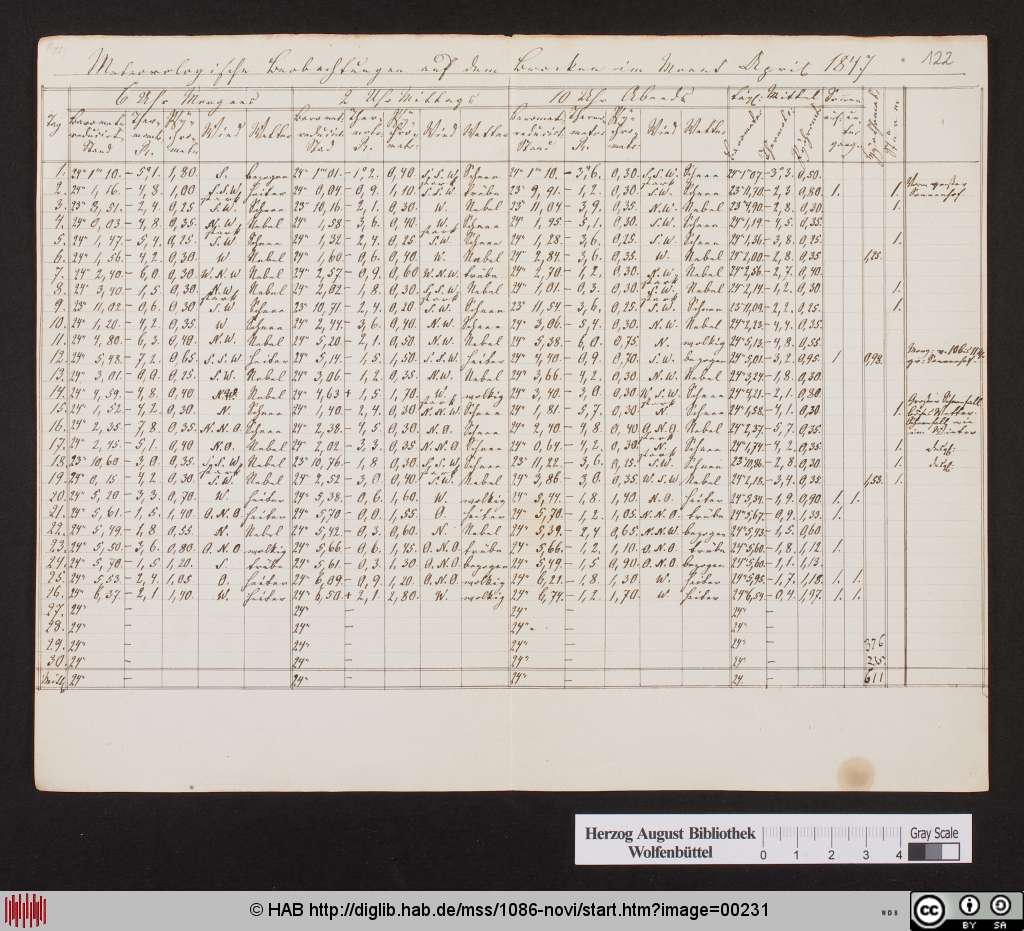 Meteorologische Beobachtungen auf dem Brocken im Monat April 1847 122
6 Uhr Morgens 2 Uhr Mittags 10 Uhr Abends
Tag Wind Wetter Wind Wetter Wind Wetter
1. 24" 1‴10. - 5,°1. 1,80. S. bezogen 24" 1‴01. - 1,°2. 0,40. S.S.W. stark Schnee 24" 1‴10. - 3,°6. 0,30. S.S.W. stark Schnee 24" 1‴07. - 3,°3. 0,50.
2. 24" 1,16. - 4,8. 1,00. S.S.W. stark heiter 24" 0,04 - 0,9. 1,10. S.S.W. trübe 23" 9,91. - 1,2. 0,30. S.W. Schnee 23" 11,70. - 2,3. 0,80. 1. 1.
3. 23" 8,51. - 2,4. 0,25. S.W. Schnee 23" 10,16. - 2,1. 0,30. W. Nebel 23" 11,04. - 3,9. 0,35. N.W. Nebel - 2,8. 0,30. 1.
4. 24" 0,03 - 4,8. 0,35. N.W. stark Nebel 24" 1,58. - 3,6. 0,40. W. stark Nebel 24" 1,45. - 5,1. 0,30. S.W. Schnee 24" 1,19. - 4,5. 0,35.
5. 24" 1,47. - 5,4. 0,25. S.W. Schnee 24" 1,32. - 2,4. 0,25 S.W. Schnee 24" 1,28. - 3,6. 0,25. S.W. Schnee 24" 1,36. - 3,8. 0,25. 1.
6. 24" 1,56. - 4,2. 0,30. W. Nebel 24" 1,60. - 0,6. 0,40. W. Nebel 24" 2,84. - 3,6. 0,35. W. Nebel 24" 2,00. - 2,8. 0,35. 1,25.
7. 24" 2,40. - 6,0. 0,30. W.N.W. Nebel 24" 2,57. - 0,9. 0,60. W.N.W. trübe 24" 2,70. - 1,2. 0,30. N.W. stark Nebel 24" 2,56. - 2,7. 0,40.
8. 24" 3,40. - 1,5. 0,30. N.W. stark Nebel 24" 2,02. - 1,8. 0,30. S.S.W. stark Nebel 24" 1,01. - 0,3. 0,30. S.W. stark Nebel 24" 2,14. - 1,2. 0,30. 1.
9. 23" 11,02. - 0,6. 0,30. S.W. Schnee 23" 10,71. - 2,4. 0,20. S.W. Schnee 23" 11,54. - 3,6. 0,25. S.W. Schnee 23" 11,09. - 2,2. 0,25. 1.
10. 24" 1,20. - 4,2. 0,35. W. Schnee 24" 2,44. - 3,6. 0,40. N.W. Schnee 24" 3,06. - 5,4. 0,30. N.W. Nebel 24" 2,23. - 4,4. 0,35.
11. 24" 4,80. - 6,3. 0,40. N.W. Nebel 24" 5,20. - 2,1. 0,50. N.W. Nebel 24" 5,38. - 6,0. 0,75. N. wolkig 24" 5,13. - 4,8. 0,55.
12. 24" 5,48. - 7,2. 0,65. S.S.W. heiter 24" 5,14. - 1,5. 1,50. S.S.W. heiter 24" 4,40. - 0,9. 0,70. S.W. bezogen 24" 5,01. - 3,2. 0,95. 1. 0,98.
13. 24" 3,01. - 0,0. 0,25. S.W. Nebel 24" 3,06. - 1,2. 0,35. N.W. Nebel 24" 3,66. - 4,2. 0,30. N.W. Nebel 24" 3,24. - 1,8. 0,30.
14. 24" 4,59. - 4,8. 0,40. Nebel 24" 4,63 + 1,5. 1,70. W. stark wolkig 24" 3,40. - 3,0. 0,30. W.S.W. stark Schnee 24" 4,21. - 2,1. 0,80.
15. 24" 1,52. - 4,2. 0,30. N. Schnee 24" 1,40. - 2,4. 0,30. N.N.W. Schnee 24" 1,81. - 5,7. 0,30. N. Schnee 24" 1,58. - 4,1. 0,30. 1.
16. 24" 2,35. - 7,8. 0,35. N.N.O. Schnee 24" 2,38. - 4,5. 0,30. N.O. Schnee 24" 2,40. - 4,8. 0,40. O.N.O. stark Nebel 24" 2,37. - 5,7. 0,35.
17. 24" 2,45. - 5,1. 0,40. N.O. Nebel 24" 2,02. - 3,3. 0,35. N.N.O. Schnee 24" 0,64. - 4,2. 0,30. N. stark Schnee 24" 1,74. - 4,2. 0,35. 1.
18. 23" 10,60. - 3,0. 0,35. S.S.W. stark Nebel 23" 10,76. - 1,8. 0,30. S.S.W. stark Schnee 23" 11,22. - 3,6. 0,25. S.W. Schnee 23" 10,86. - 2,8. 0,30. 1.
19. 24" 0,15. - 4,2. 0,30. S.W. Nebel 24" 2,52. - 3,0. 0,40. S.W. Nebel 24" 3,86. - 3,0. 0,35. W.S.W. Nebel 24" 2,18. - 3,4. 0,35. 1,53. 1.
20. 24" 5,20. - 3,3. 0,70. W. heiter 24" 5,38. - 0,6. 1,60. W. wolkig 24" 5,44. - 1,8. 1,40. N.O. heiter 24" 5,34. - 1,9. 0,90. 1. 1.
21. 24" 5,61. - 1,5. 1,40. O.N.O. heiter 24" 5,70. - 0,0. 1,55. O. heiter 24" 5,70. - 1,2. 1,05. N.N.O. trübe 24" 5,67. - 0,9. 1,33. 1.
22. 24" 5,49. - 1,8. 0,55. N. Nebel 24" 5,42. - 0,3. 0,60. N. Nebel 24" 5,39. - 2,4. 0,65. N.N.W. bezogen 24" 5,43. - 1,5. 0,60.
23. 24" 5,50. - 3,6. 0,80. O.N.O. wolkig 24" 5,66. - 0,6. 1,45. O.N.O. trübe 24" 5,66. - 1,2. 1,10. O.N.O. trübe 24" 5,60. - 1,8. 1,12. 1.
24. 24" 5,70. - 1,5. 1,20. S. trübe 24" 5,61. - 0,3. 1,30. O.N.O. bezogen 24" 5,49. - 1,5. 0,90. O.N.O. bezogen 24" 5,60. - 1,1. 1,13.
25. 24" 5,53. - 2,4. 1,05. O. heiter 24" 6,09. - 0,9. 1,20. O.N.O. wolkig 24" 6,21. - 1,8. 1,30. W. heiter 24" 5,95. - 1,7. 1,18. 1. 1.
26. 24" 6,37. - 2,1. 1,40. W. heiter 24" 6,50. + 2,1. 2,80. W. wolkig 24" 6,74. - 1,2. 1,70. W. heiter 24" 6,54. - 0,4. 1,97. 1. 1.
27. 24" - 24" - 24" - 24" -
28. 24" - 24" - 24" - 24" -
29. 24" - 24" - 24" - 24" - 376
30. 24" - 24" - 24" - 24" -
24" - 24" - 24" - 24. - 611
Herzog August Bibliothek
Wolfenbüttel
0 1 2 3 4
Gray Scale
© HAB http://diglib.hab.de/mss/1086-novi/start.htm?image=00231
WDB
cc BY SA